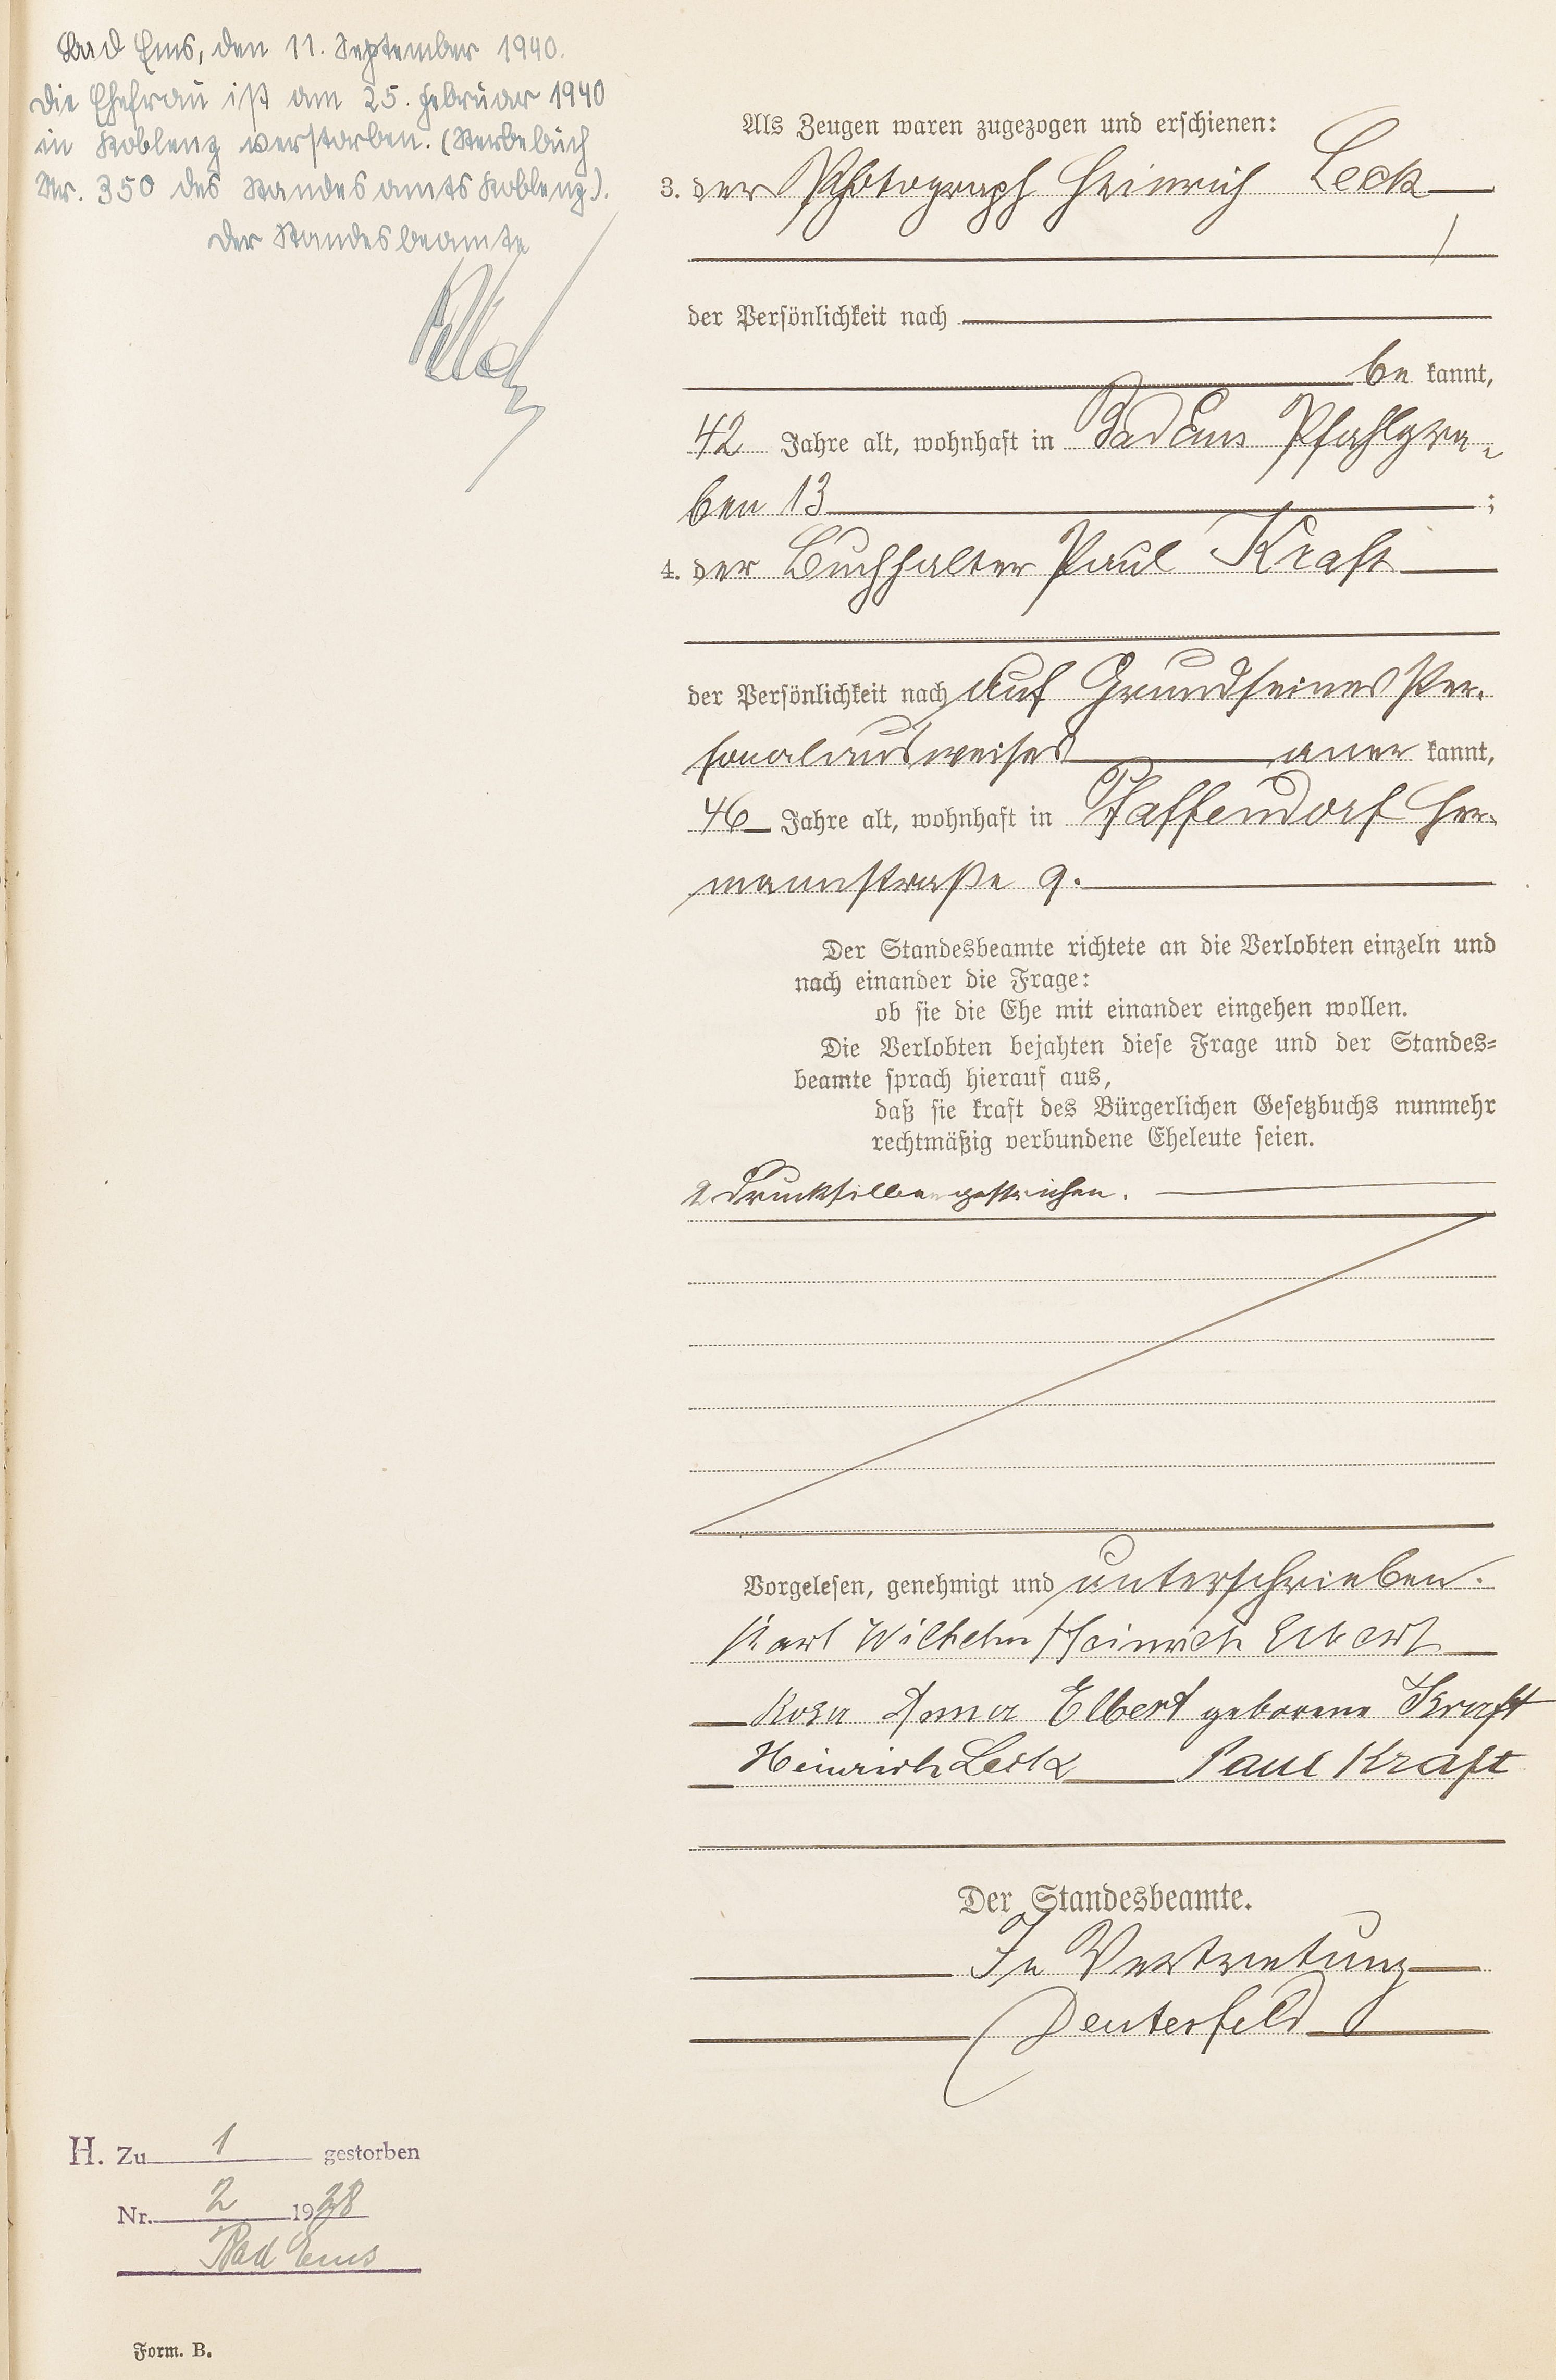 Bad Ems, den 11. September 1940.
Die Ehefrau ist am 25. Februar 1940
in Koblenz verstorben. (Sterbebuch
Nr. 350 des Standesamts Koblenz).
Der Standesbeamte
Als Zeugen waren zugezogen und erschienen:
3. der Photograph Heinrich Leck
der Persönlichkeit nach
be kannt,
42 Jahre alt, wohnhaft in Bad Ems Pfahlgra-
ben 13 ;
4. der Buchhalter Paul Kraft
der Persönlichkeit nach auf Grund seines Per-
sonalausweises aner kannt,
46 Jahre alt, wohnhaft in Pfaffendorf Her-
mannstraße 9.
Der Standesbeamte richtete an die Verlobten einzeln und
nach einander die Frage:
ob sie die Ehe mit einander eingehen wollen.
Die Verlobten bejahten diese Frage und der Standes-
beamte sprach hierauf aus,
daß sie kraft des Bürgerlichen Gesetzbuchs nunmehr
rechtmäßig verbundene Eheleute seien.
2 Drucksilben gestrichen.
Vorgelesen, genehmigt und unterschrieben.
Karl Wilhelm Heinrich Elbert
Rosa Anna Elbert geborene Kraft
Heinrich Leck Paul Kraft
Der Standesbeamte.
In Vertretung
Deuterfeld
H. Zu 1 gestorben
Nr. 2 1938
Bad Ems
Form. B.